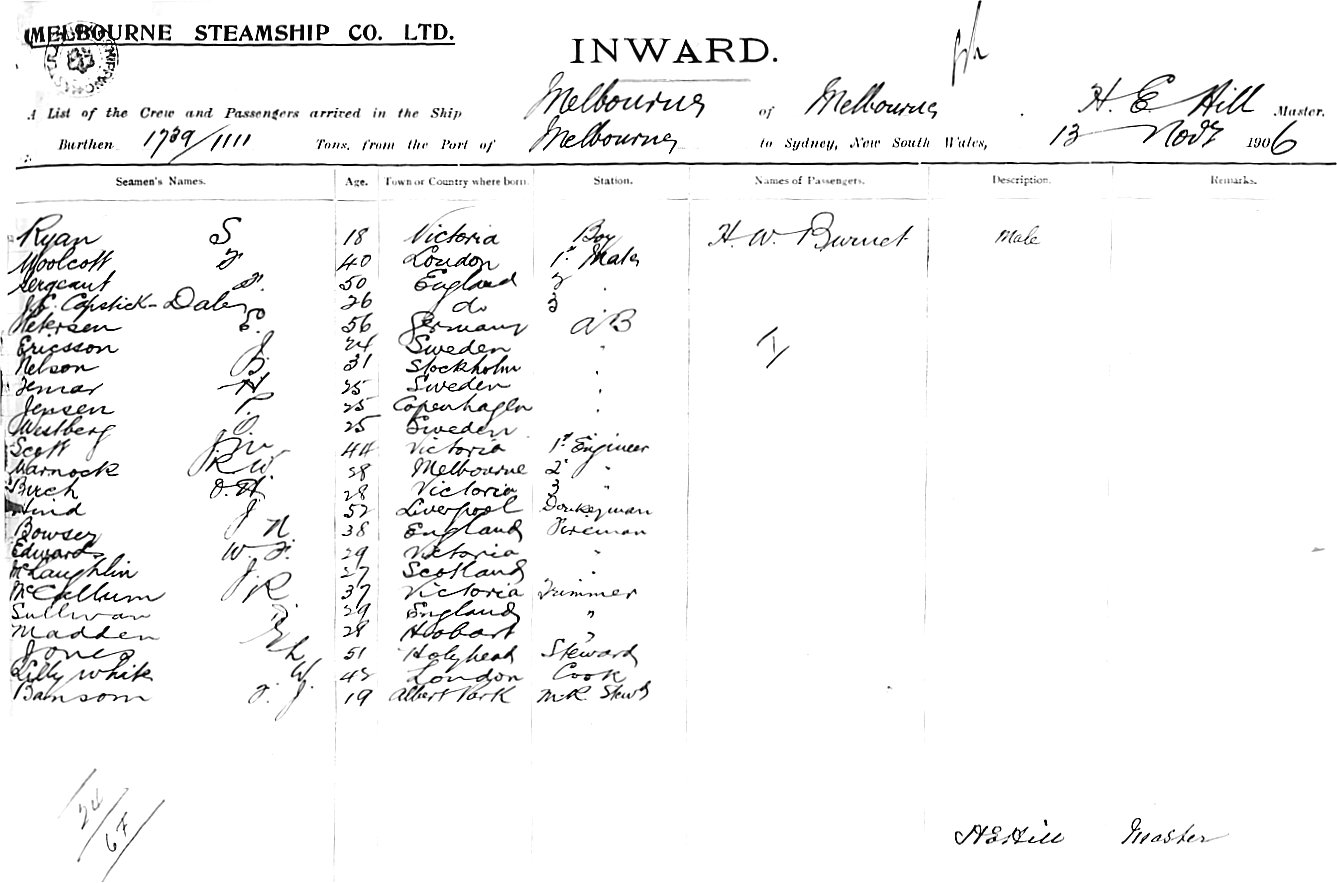 MELBOURNE STEAMSHIP CO. LTD.
INWARD.
A List of the Crew and Passengers arrived in the Ship Melbourne of Melbourne . H. E. Hill Master.
Burthen 1739/1111 Tons, from the Port of Melbourne to Sydney, New South Wales, 13 Novr 1906
Seamen's Names. Age. Town or Country where born. Station. Names of Passengers. Description. Remarks.
Ryan S 18 Victoria Boy H W. Burnet Male
Woolcott F 40 London 1st Mate
Sergeant 50 England 2 "
J.E. Capstick-Daley 26 do 3
Petersen E. 56 Germany A B
Ericsson J. 24 Sweden "
1
Nelson B. 31 Stockholm "
H 25 Sweden "
Jensen P. 25 Copenhagen "
Westberg O. 25 Sweden
Scott J. M 44 Victoria 1st Engineer
Warnock R W 28 Melbourne 2 "
Birch O. H. 28 Victoria 3 "
Hind J 52 Liverpool Donkeyman
Bowser N. 38 England Fireman
Edwards W. F. 29 Victoria "
McLaughlin J. 27 Scotland "
McCallum R 37 Victoria Trimmer
Sullivan 29 England "
Madden 28 Hobart "
Jones 51 Holyhead Steward
Lillywhite W. 42 London Cook
Bansom F. J. 19 Albert Park M.R. Stewd
24/67
H E Hill Master